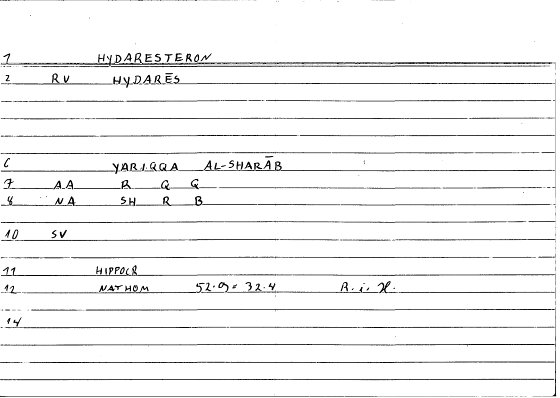 1 HYDARESTERON
2 RV HYDARĒS
6 YARIQQA AL-SHARĀB
7 AA R Q Q
8 NA SH R B
10 SV
11 HIPPOCR
12 NATHOM 52.9= 32.4 R. i. H.
14